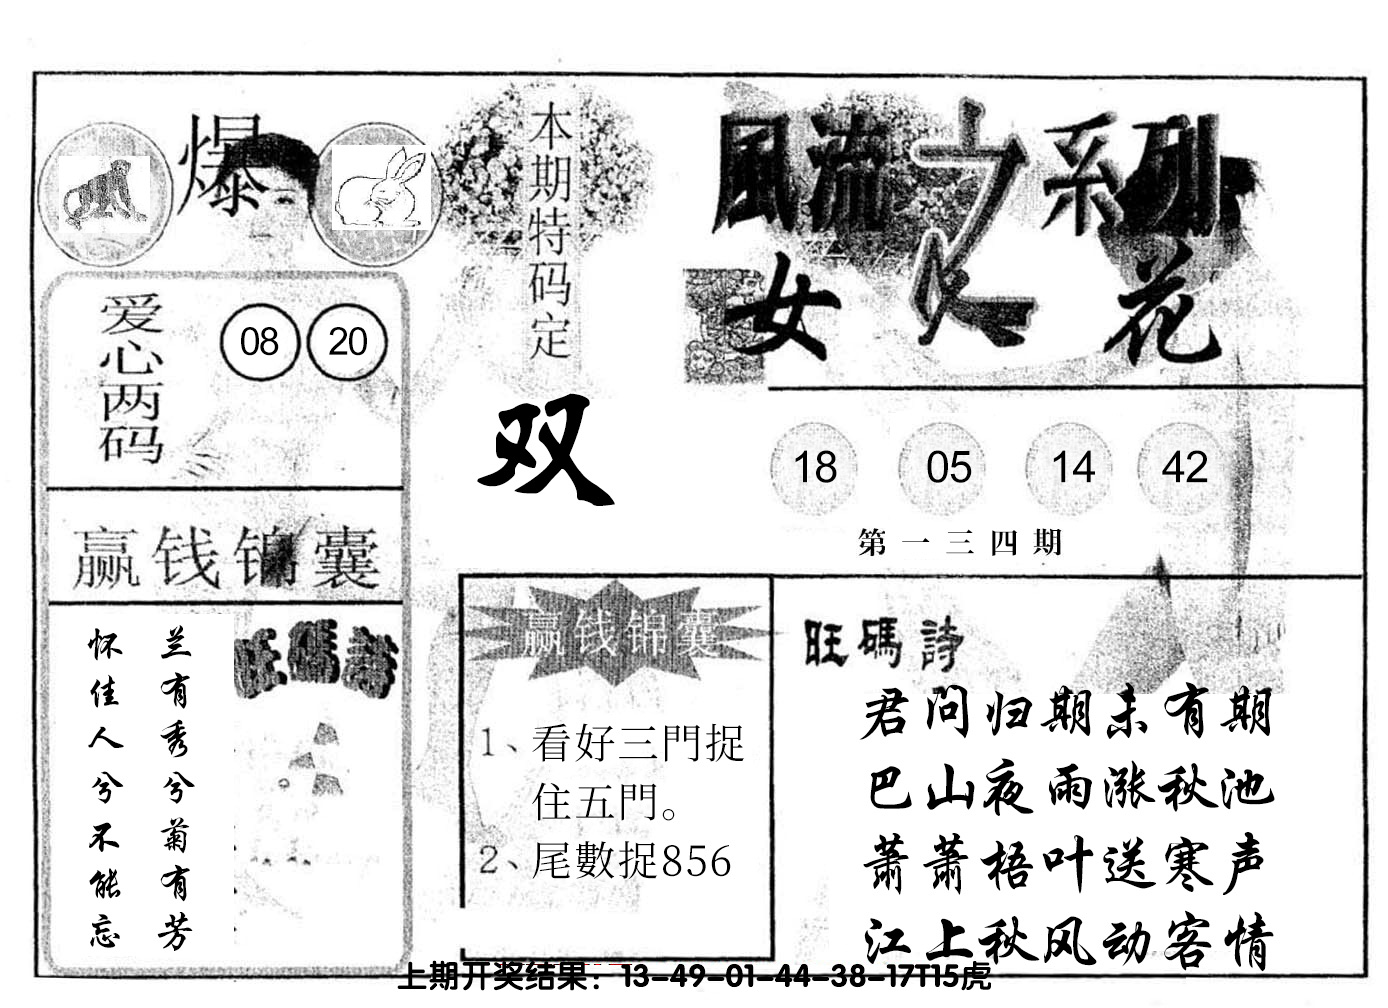 爆
本期特码定
双
爱心两码
08 20
赢钱锦囊
兰有秀兮菊有芳
怀佳人兮不能忘
旺碼詩
風流之系列
女人花
18 05 14 42
第一三四期
赢钱锦囊
1、看好三門捉
住五門。
2、尾數捉856
旺碼詩
君问归期未有期
巴山夜雨涨秋池
萧萧梧叶送寒声
江上秋风动客情
上期开奖结果：13-49-01-44-38-17T15虎